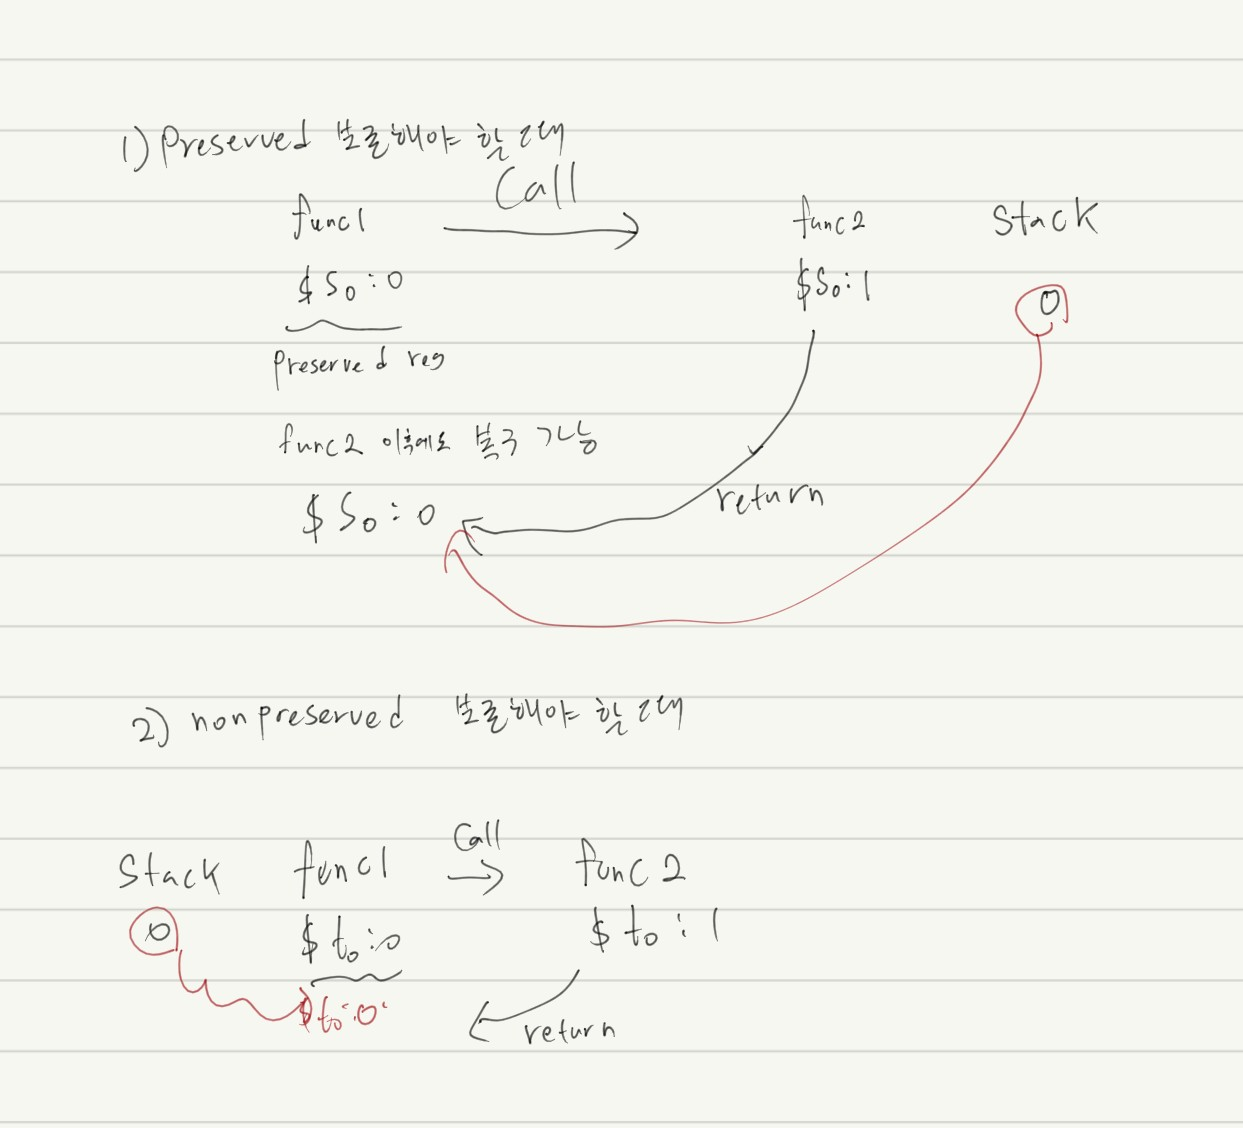 1) Preserved 보존해야 할 때
Call
func1 func2 Stack
$S0:0 $S0:1 0
Preserved reg
func2 이후에도 복구 가능
$S0:0
return
2) nonpreserved 보존해야 할 때
Call
Stack func1 func2
0 $t0:0 $t0:1
$t0:0
return